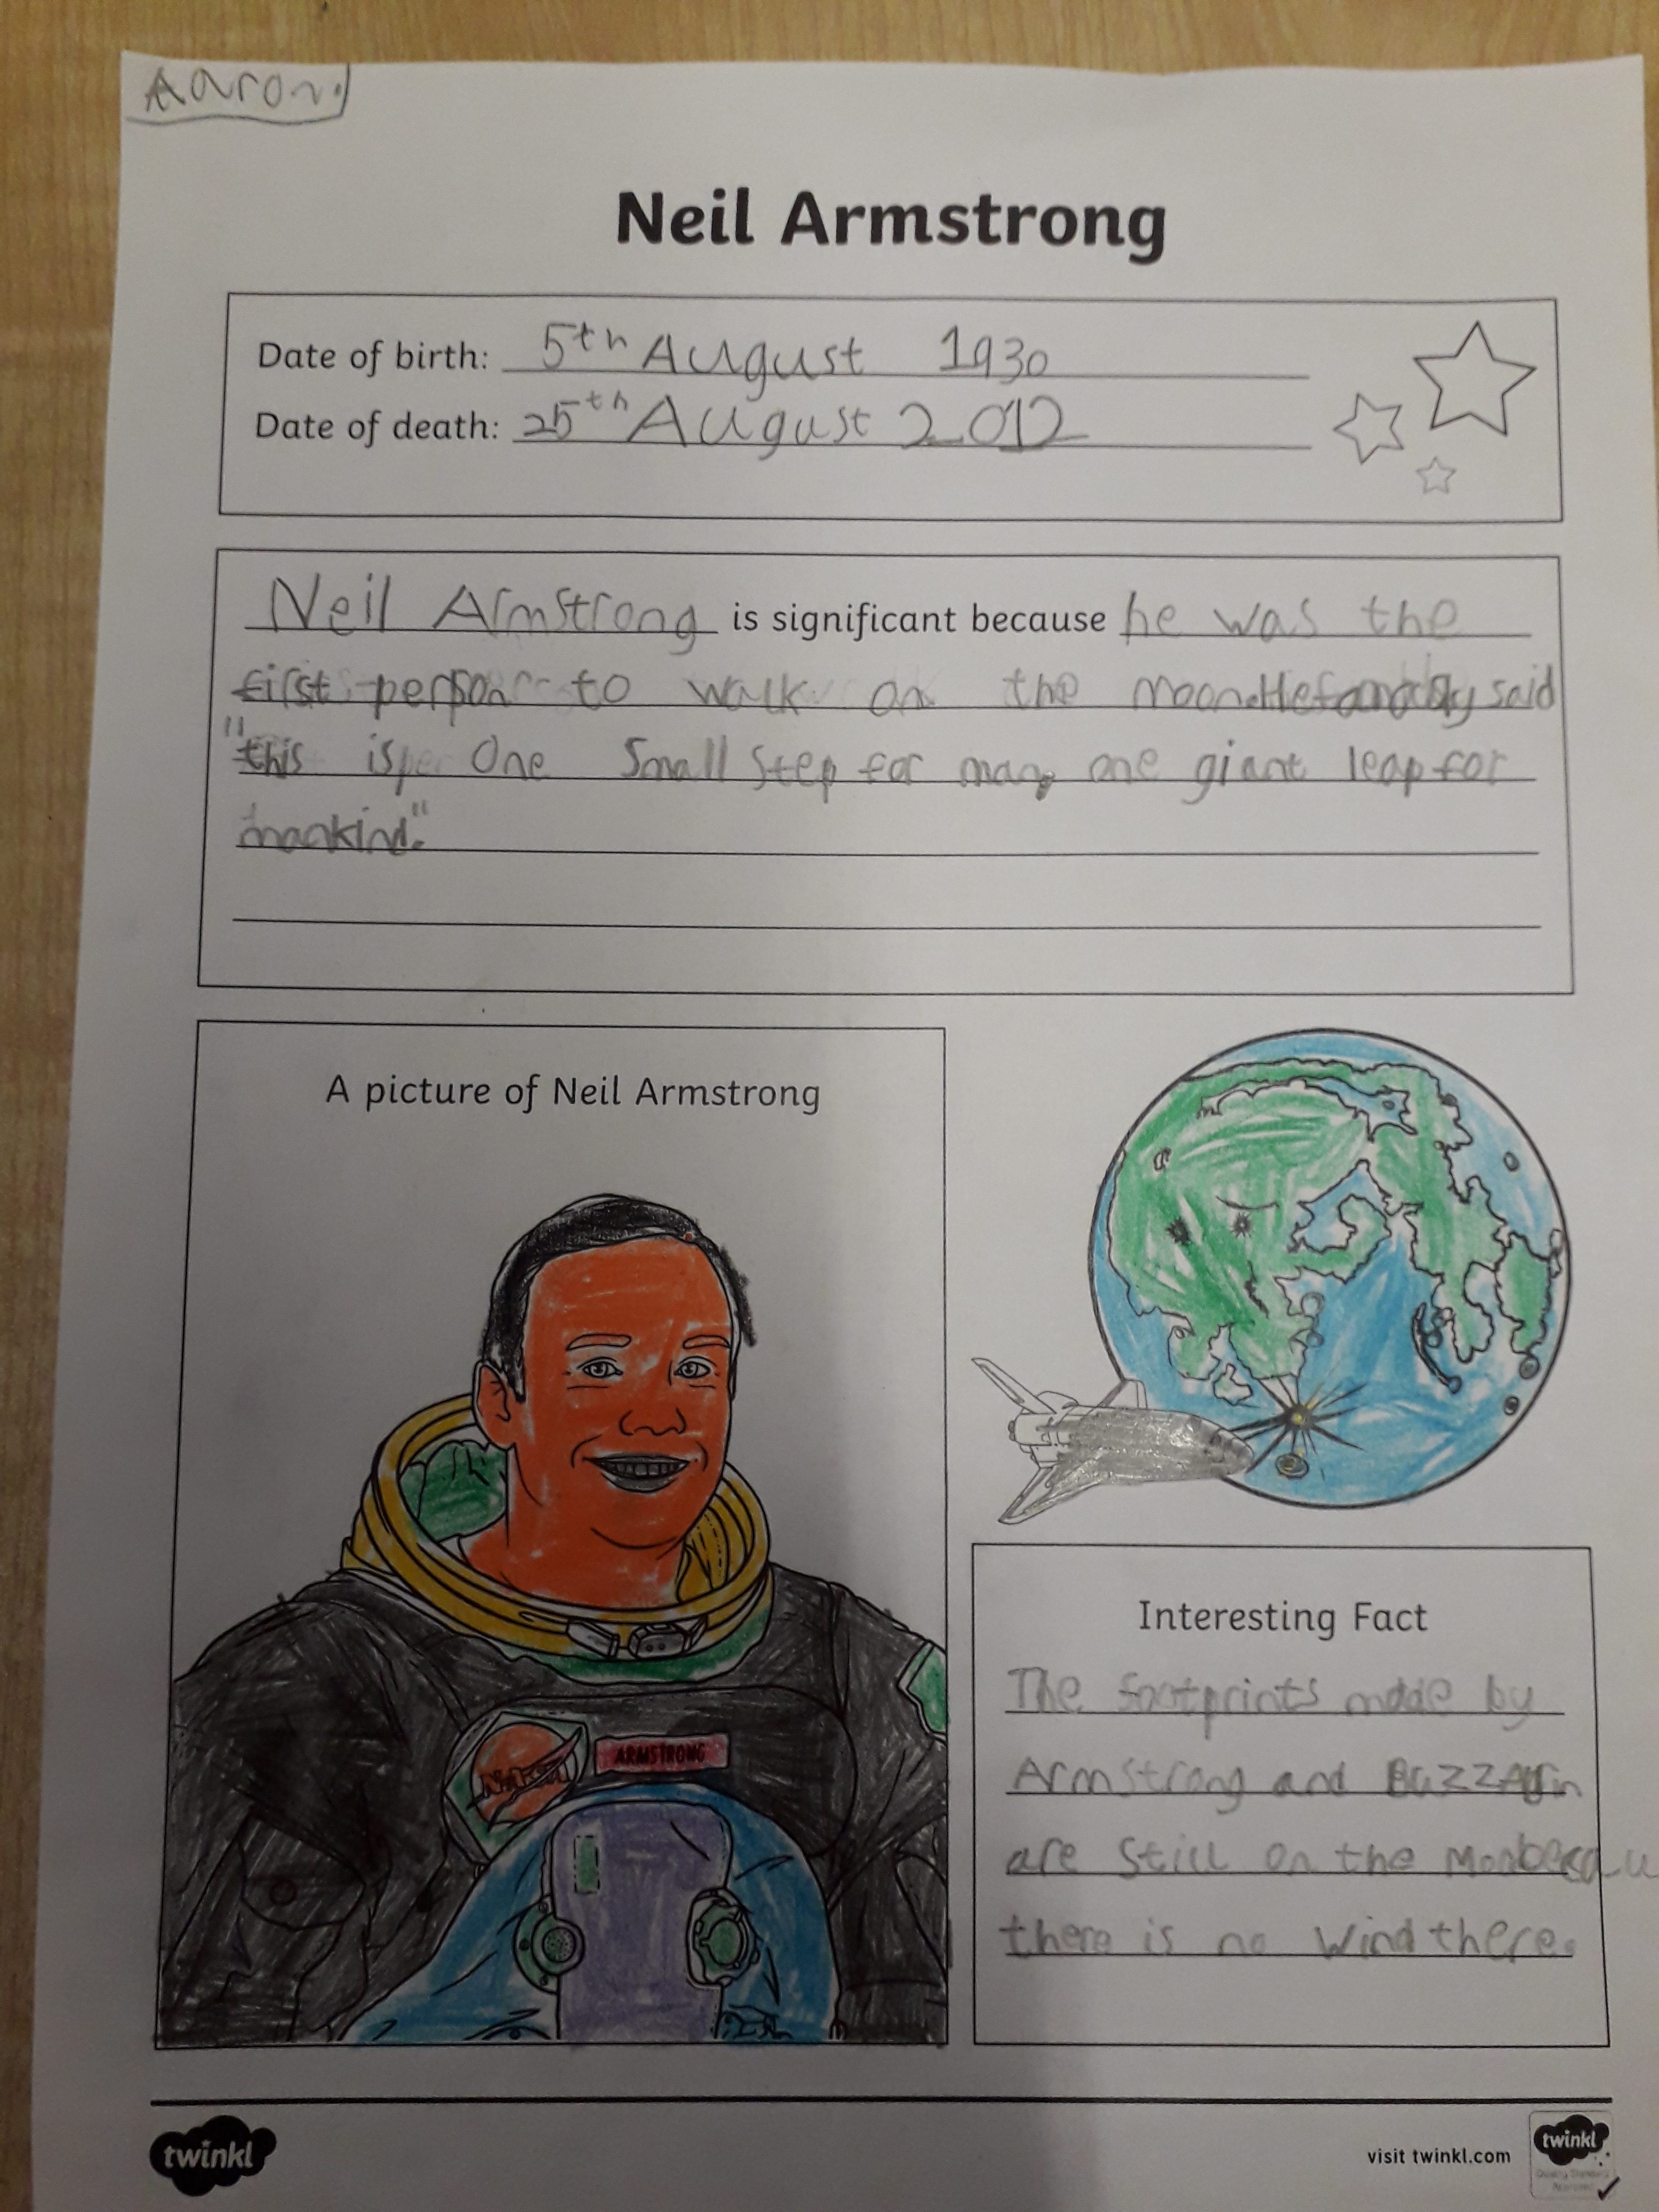 Aaron
Neil Armstrong
Date of birth: 5th August 1930
Date of death: 25th August 2012
Neil Armstrong is significant because he was the
first person to walk on the moon. He famously said
"this is one small step for man, one giant leap for
mankind."
A picture of Neil Armstrong
NASA
ARMSTRONG
Interesting Fact
The footprints made by
Armstrong and Buzz
are still on the
there is no wind there.
twinkl
visit twinkl.com
twinkl
Quality Standard
Approved